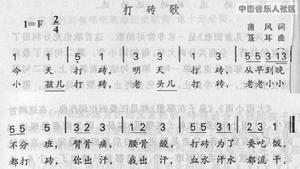 打砖歌
中国音乐人社区
1=F 2/4
蒲风 词
聂耳 曲
1 1 5 1 3 3 1 3 5 5 3 1 3
今天打砖，明天打砖，从早到晚
小孩儿打砖，老头儿打砖，老老小小
5 5 5 1 2 3 3 1 2 3 5 5 3 1 2 3 1
不分班，臂背痛，腰骨酸，打砖为了要吃饭，
都打砖，你出汗，我出汗，血水汗水都流干，